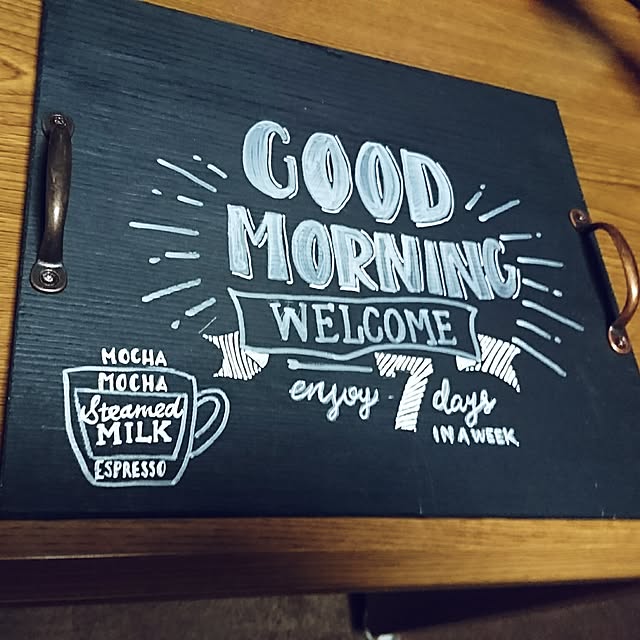 GOOD
MORNING
WELCOME
enjoy 7 days
IN A WEEK
MOCHA
MOCHA
Steamed
MILK
ESPRESSO